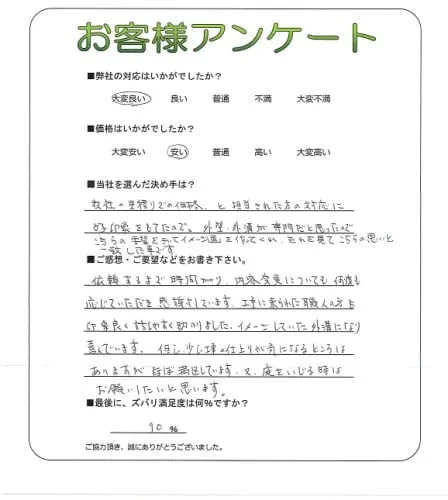 お客様アンケート
■弊社の対応はいかがでしたか？
大変良い 良い 普通 不満 大変不満
■価格はいかがでしたか？
大変安い 安い 普通 高い 大変高い
■当社を選んだ決め手は？
数社の見積りでの価格、と担当された方の対応に
好印象をもてたので。外壁・外溝が専門だと思ったので
こちらの希望をきいてイメージ画を作ってくれ、それを見てこちらの思いと
一致した事です
■ご感想・ご要望などをお書き下さい。
依頼するまで時間かかり、内容変更についても何度も
応じていただき感謝しています。工事に来られた職人の方も
印象良く話しやすく助かりました。イメージしていた外溝になり
喜んでいます。但し、少し の仕上りが気になるところは
ありますがほぼ満足しています。又、庭をいじる時は
お願いしたいと思います。
■最後に、ズバリ満足度は何％ですか？
90 ％
ご協力頂き、誠にありがとうございました。